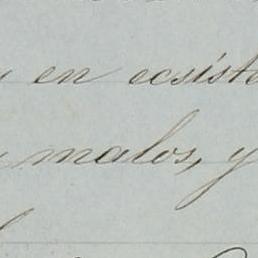 en ecsiste
malos, y